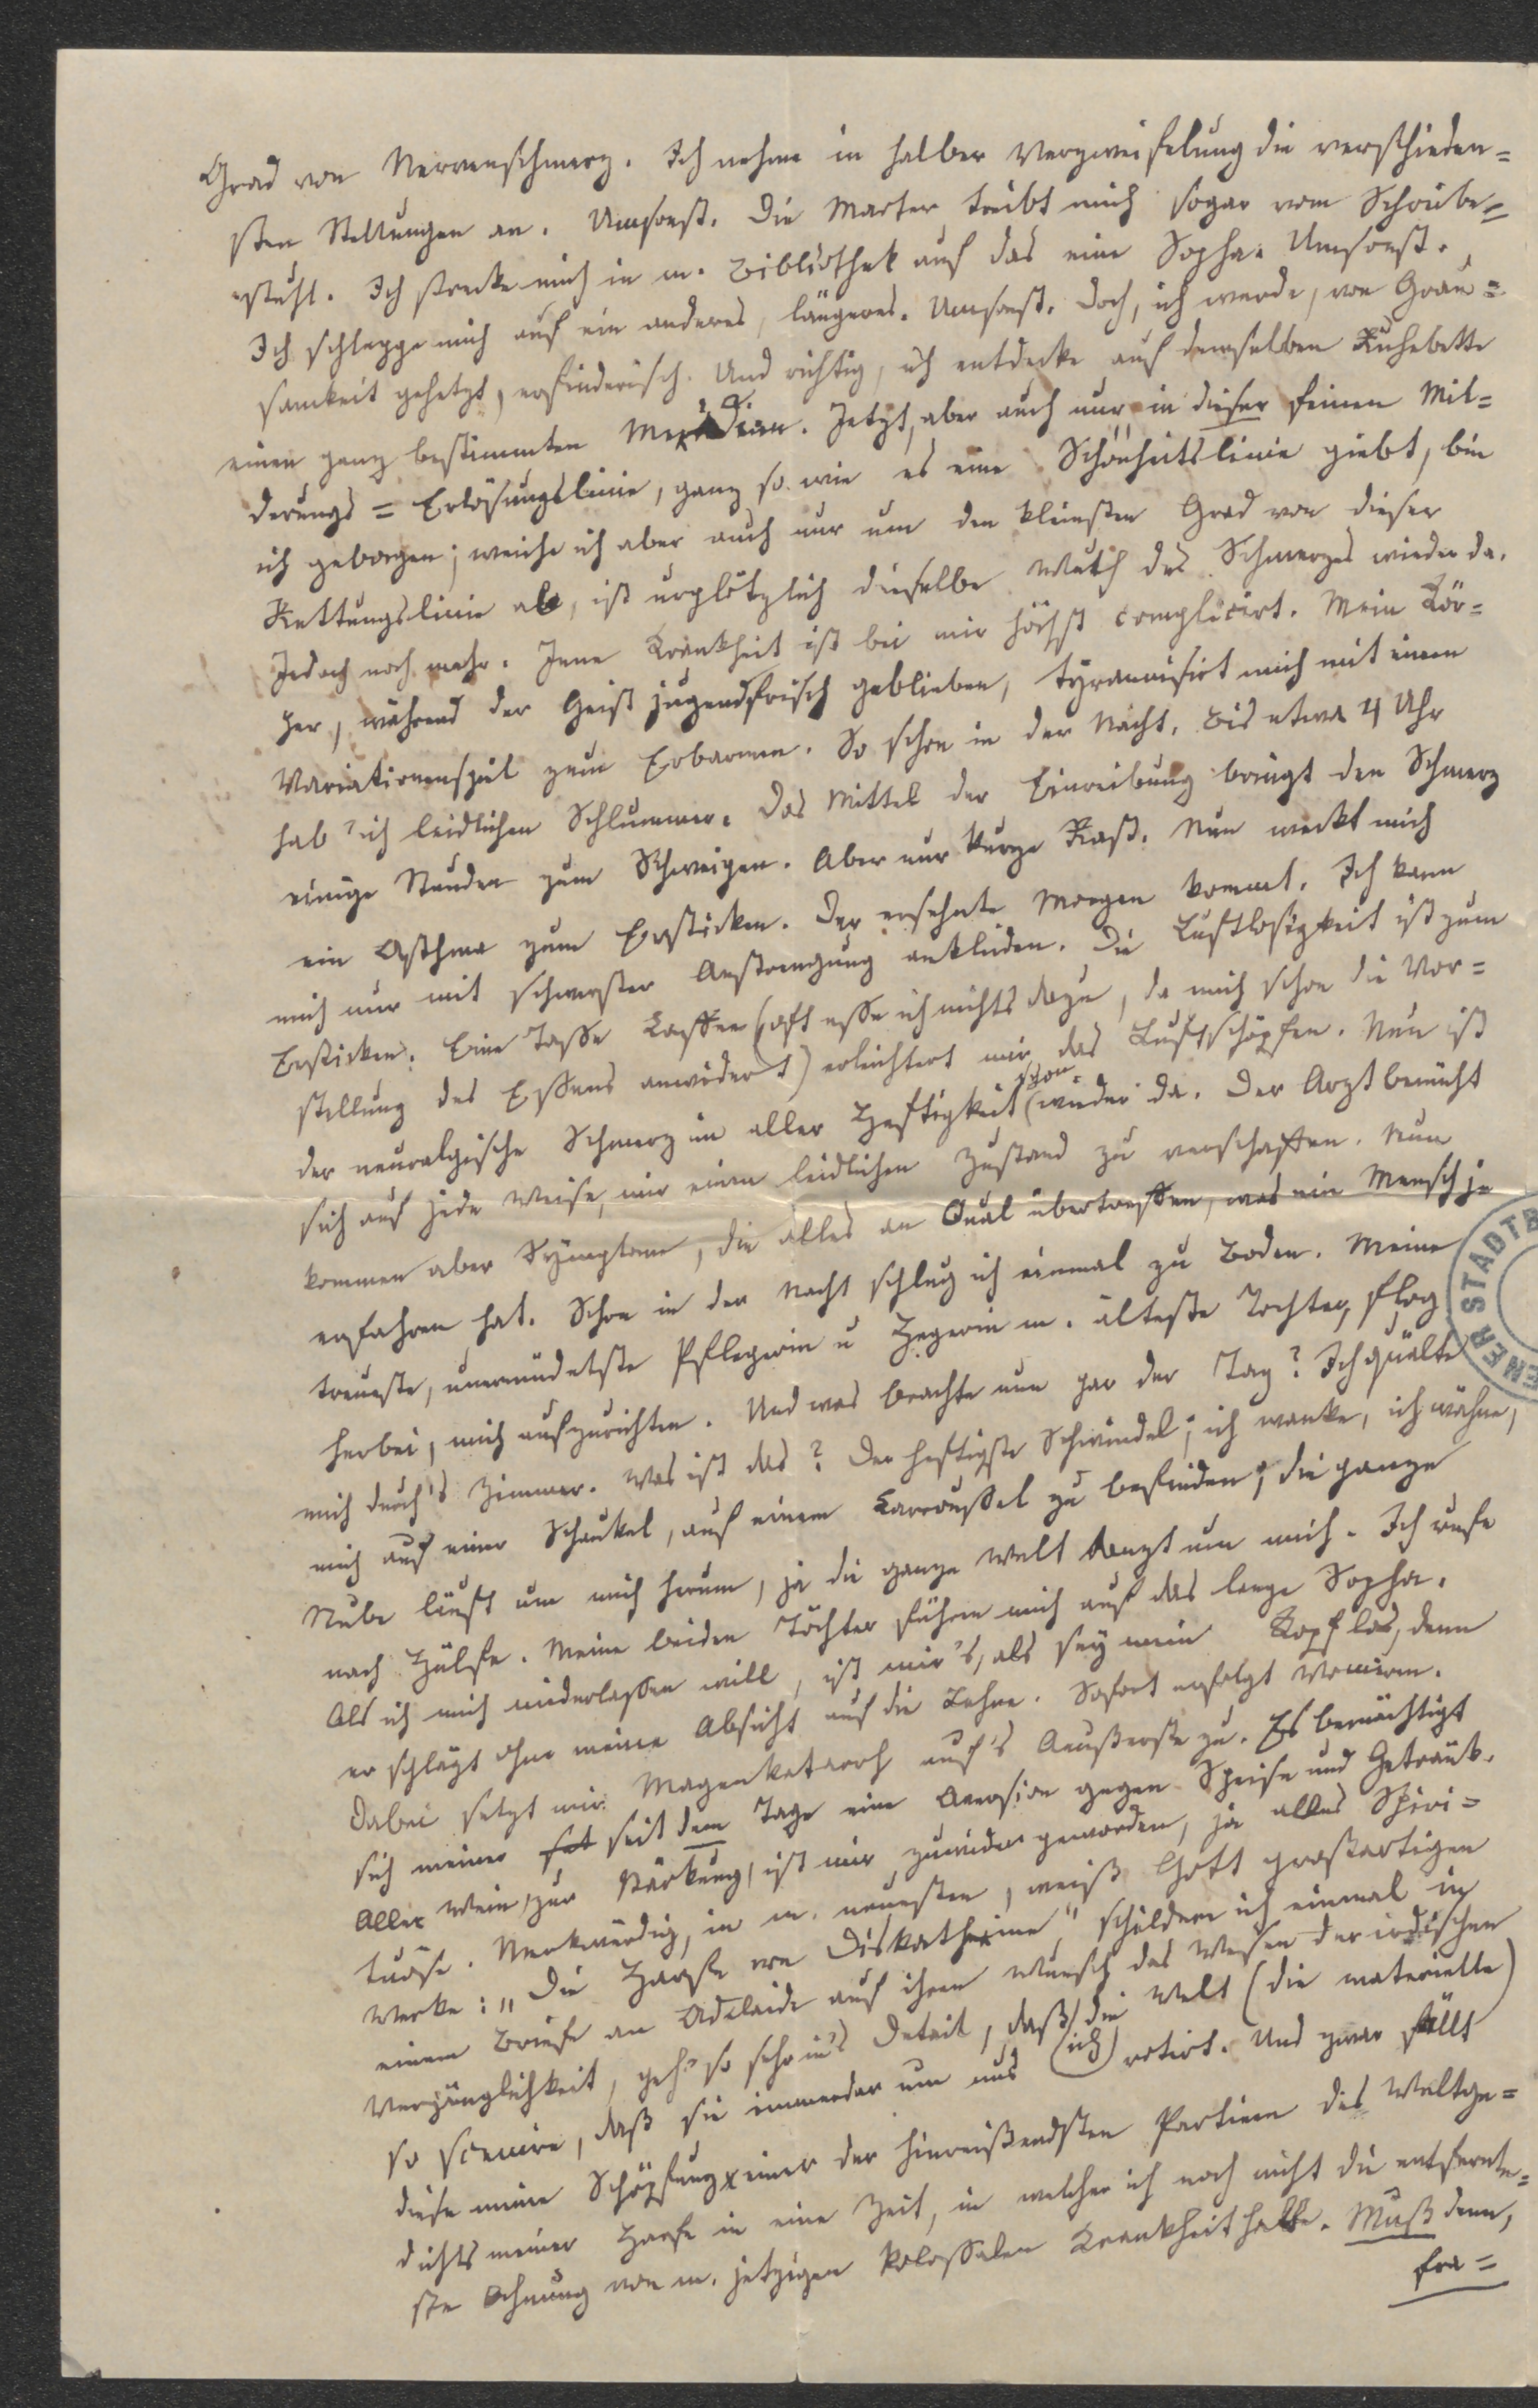 Grad von Nervenschmerz. Ich nehme in halber Verzweifelung die verschieden=
sten Stellungen an. Umsonst. Die Marter treibt mich sogar vom Schreibe=
stuhl. Ich strecke mich in m. Bibliothek auf das eine Sopha. Umsonst.
Ich schleppe mich auf ein anderes, längeres. Umsonst. Doch, ich werde, von Grau=
samkeit gehetzt, erfinderisch. Und richtig, ich entdecke auf demselben Ruhebette
einen ganz bestimmten Meridian. Jetzt, aber auch nur in dieser feinen Mil=
derungs= Erlösungslinie, ganz so wie es eine Schönheitslinie giebt, bin
ich geborgen; weiche ich aber auch nur um den kleinsten Grad von dieser
Rettungslinie ab, ist urplötzlich dieselbe Wuth des Schmerzes wieder da.
Jedoch noch mehr. Jene Krankheit ist bei mir höchst complicirt. Mein Kör=
per, während der Geist jugendfrisch geblieben, tyrannisirt mich mit einem
Variationenspiel zum Erbarmen. So schon in der Nacht. Bis etwa 4 Uhr
hab' ich leidlichen Schlummer. Das Mittel der Einreibung bringt den Schmerz
einige Stunden zum Schweigen. Aber nur kurze Rast. Nun weckt mich
ein Asthma zum Ersticken. Der ersehnte Morgen kommt. Ich kann
mich nur mit schwerster Anstrengung ankleiden. Die Luftlosigkeit ist zum
Ersticken. Eine Tasse Kaffee (oft esse ich nichts dazu, da mich schon die Vor=
stellung des Essens anwidert) erleichtert mir das Luftschöpfen. Nun ist
der neuralgische Schmerz in aller Heftigkeit schon wieder da. Der Arzt bemüht
sich auf jede Weise, mir einen leidlichen Zustand zu verschaffen. Nun
kommen aber Symptome, die alles an Qual übertreffen, was ein Mensch je
erfahren hat. Schon in der Nacht schlug ich einmal zu Boden. Meine
treueste, unermüdetste Pflegerin u Hegerin m. älteste Tochter, flog
herbei, mich aufzurichten. Und was brachte nun gar der Tag? Ich quälte
mich durch's Zimmer. Was ist das? Der heftigste Schwindel; ich wanke, ich wähne,
mich auf einer Schaukel, auf einem Carroussel zu befinden; die ganze
Stube läuft um mich herum, ja die ganze Welt tanzt um mich. Ich rufe
nach Hülfe. Meine beiden Töchter führen mich auf das lange Sopha.
Als ich mich niederlassen will, ist mir's, als sey mein Kopf los, denn
er schlägt ohne meine Absicht auf die Lehne. Sofort erfolgt Vomiren.
Dabei setzt mir Magenkatarrh auf's Aeußerste zu. Es bemächtigt
sich meiner seit dem Tage eine Aversion gegen Speise und Getränk.
Aller Wein, zur Stärkung, ist mir zuwider geworden, ja alles Spiri=
tuöse. Merkwürdig, in m. neuesten, weiß Gott großartigen
Werke: „Die Harfe von Diskatherine", schildere ich einmal in
einem Briefe an Adelaide auf ihren Wunsch das Wesen der irdischen
Vergänglichkeit, geh' so sehr in's Detail, daß die Welt (die materielle)
so scenire, daß sie immerdar um uns (ich) rotirt. Und zwar fällt
diese meine Schöpfung einer der hinreißendsten Partieen des Weltge=
dichts meiner Harfe in eine Zeit, in welcher ich noch nicht die entfernte=
ste Ahnung von m. jetzigen kolossalen Krankheit hatte. Muß denn,
fra=